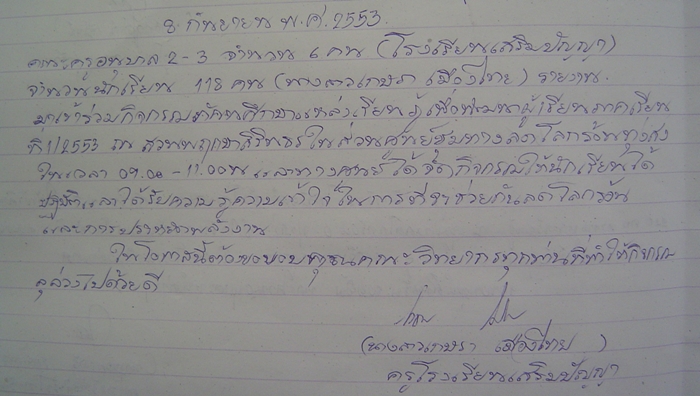 8 กันยายน พ.ศ. 2553
คณะครูอนุบาล 2-3 จำนวน 6 คน (โรงเรียนเสริมปัญญา)
จำนวนนักเรียน 118 คน (นางสาวเกษรา เมืองไทย) รายงาน.
มาเข้าร่วมกิจกรรมทัศนศึกษาแหล่งเรียนรู้เพื่อพัฒนาผู้เรียนภาคเรียน
ที่ 1/2553 ณ สวนพฤกษาสิรินธร ในส่วน
ในเวลา 09.00 - 11.00 น และทางศูนย์ได้จัดกิจกรรมให้นักเรียนได้
ปฏิบัติและได้รับความรู้ความเข้าใจในการที่จะช่วยกันลดโลกร้อน
และการประหยัดพลังงาน
ในโอกาสนี้ต้องขอขอบคุณคณะวิทยากรทุกท่านที่ทำให้กิจกรรม
ลุล่วงไปด้วยดี
(นางสาวเกษรา เมืองไทย )
ครูโรงเรียนเสริมปัญญา